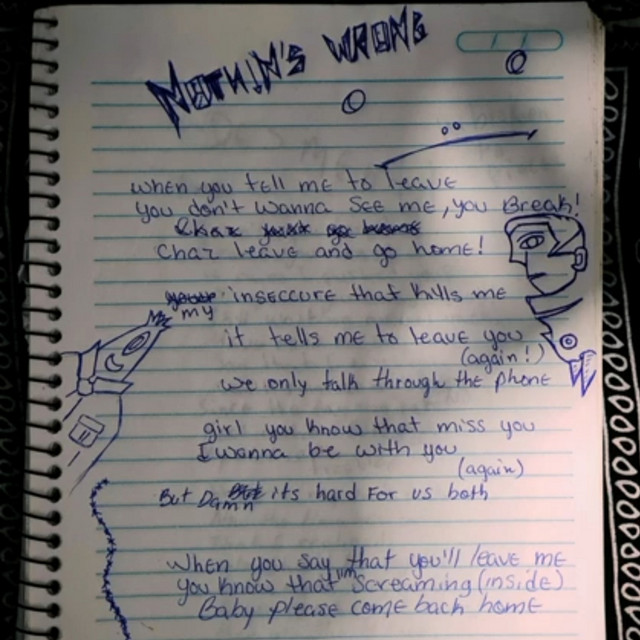 NOTHIN'S WRONG
when you tell me to leave
you don't wanna See me, you Break!
Chaz leave and go home!
my inseccure that kills me
it tells me to leave you
(again!)
we only talk through the phone
girl you know that miss you
I wanna be with you
(again)
But Damn its hard For us both
When you say that you'll leave me
you know that im screaming (inside)
Baby please come back home